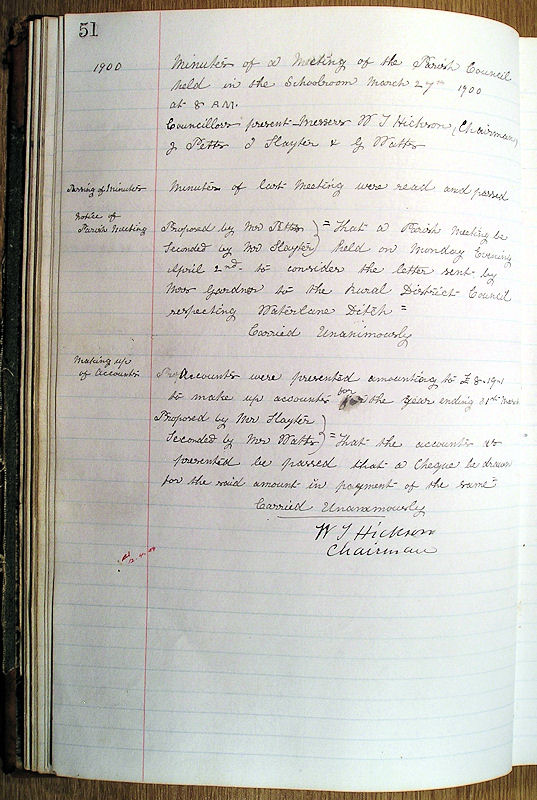 51
1900
Minutes of a Meeting of the Parish Council
held in the Schoolroom March 27th 1900
at 8 P.M.
Councillors present Messers W T Hickson (Chairman)
J Petts J Slayter & G Watts
Passing of Minutes
Minutes of last Meeting were read and passed
Notice of
Parish Meeting
Proposed by Mr Petts } = That a Parish Meeting be
Seconded by Mr Slayter } held on Monday Evening
April 2nd to consider the letter sent by
Gardner to the Rural District Council
respecting Waterlane Ditch =
Carried Unanimously
Making up
of Accounts
Accounts were presented amounting to £8-19-1
to make up accounts for the year ending 31st March
Proposed by Mr Slayter }
Seconded by Mr Watts } = That the accounts as
presented be passed that a Cheque be drawn
for the said amount in payment of the same =
Carried Unanimously
W T Hickson
Chairman